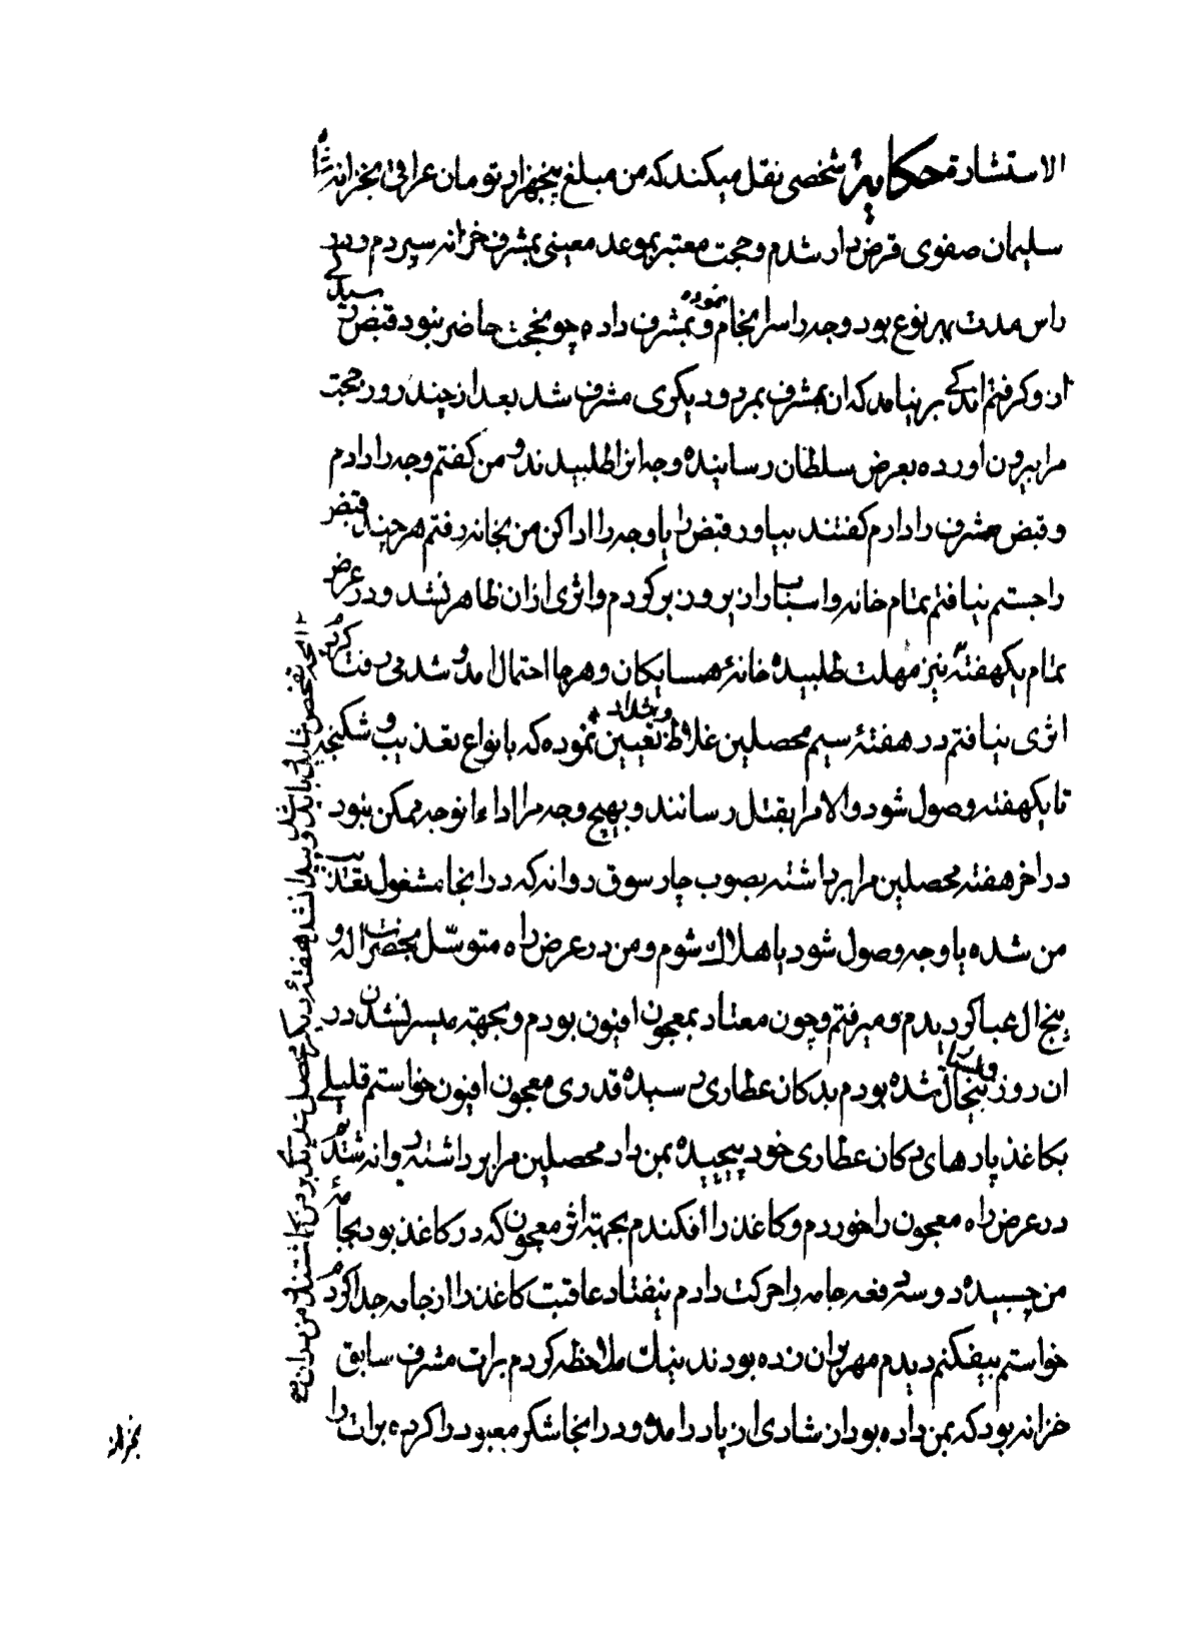 الاستشارة حکایة شخصی نقل میکند که من مبلغ پنجهزار تومان عراقی بخزانه شاه
سلیمان صفوی قرض دار شدم و حجت معتبر بموعد معینی بمشرف خزانه سپردم و در
راس مدت بهر نوع بود وجه را سرانجام نموده و بمشرف داده چو بحجت حاضر نبود قبض رسیدگی
از و کرفتم اندکی برنیامد که ان مشرف بمرد و دیکری مشرف شد بعد از چند روز حجت
مرا بیرون اورده بعرض سلطان رسانیده وجه انرا طلبیدند و من کفتم وجه را دادم
و قبض مشرف را دارم کفتند بیاور قبض را یا وجه را ادا کن من بخانه رفتم هر چند قبض
را جستم نیافتم تمام خانه و اسباب را زیر و زبر کردم و اثری ازان ظاهر نشد و در عرض
تمام یکهفته نیز مهلت طلبیده خانهٔ همسایکان و هرجا احتمال امد و شد می رفت کردید
اثری نیافتم در هفتهٔ سیم محصلین غلاظ و شداد تعیین نموده که بانواع تعذیب و شکنجه
تا یکهفته وصول شود والا مرا بقتل رسانند و بهیچ وجه مرا اداء انوجه ممکن نبود
در اخر هفته محصلین مرا برداشته بصوب چارسوق روانه که در انجا مشغول تعذیب
من شده یا وجه وصول شود یا هلاک شوم و من در عرض راه متوسل بحضرات اله و
پنج ال عبا کردیدم و میرفتم و چون معتاد بمعجون افیون بودم و بجهته میسر نشدن در
ان روز بیحال شده بودم بدکان عطاری رسیده قدری معجون افیون خواستم قلیلی
بکاغذ پارهای دکان عطاری خود پیچیده بمن داد محصلین مرا برداشته روانه شدند
در عرض راه معجون را خوردم و کاغذ را افکندم بجهته اثر معجون که در کاغذ بود بجامهٔ
من چسبیده دو سه دفعه جامه را حرکت دادم نیفتاد عاقبت کاغذ را از جامه جدا کردم
خواستم بیفکنم دیدم مهر بران زده بودند نیک ملاحظه کردم برات مشرف سابق
خزانه بود که بمن داده بود از شادی از پا درامده و در انجا شکر معبود را کرده برات را
بخزانه